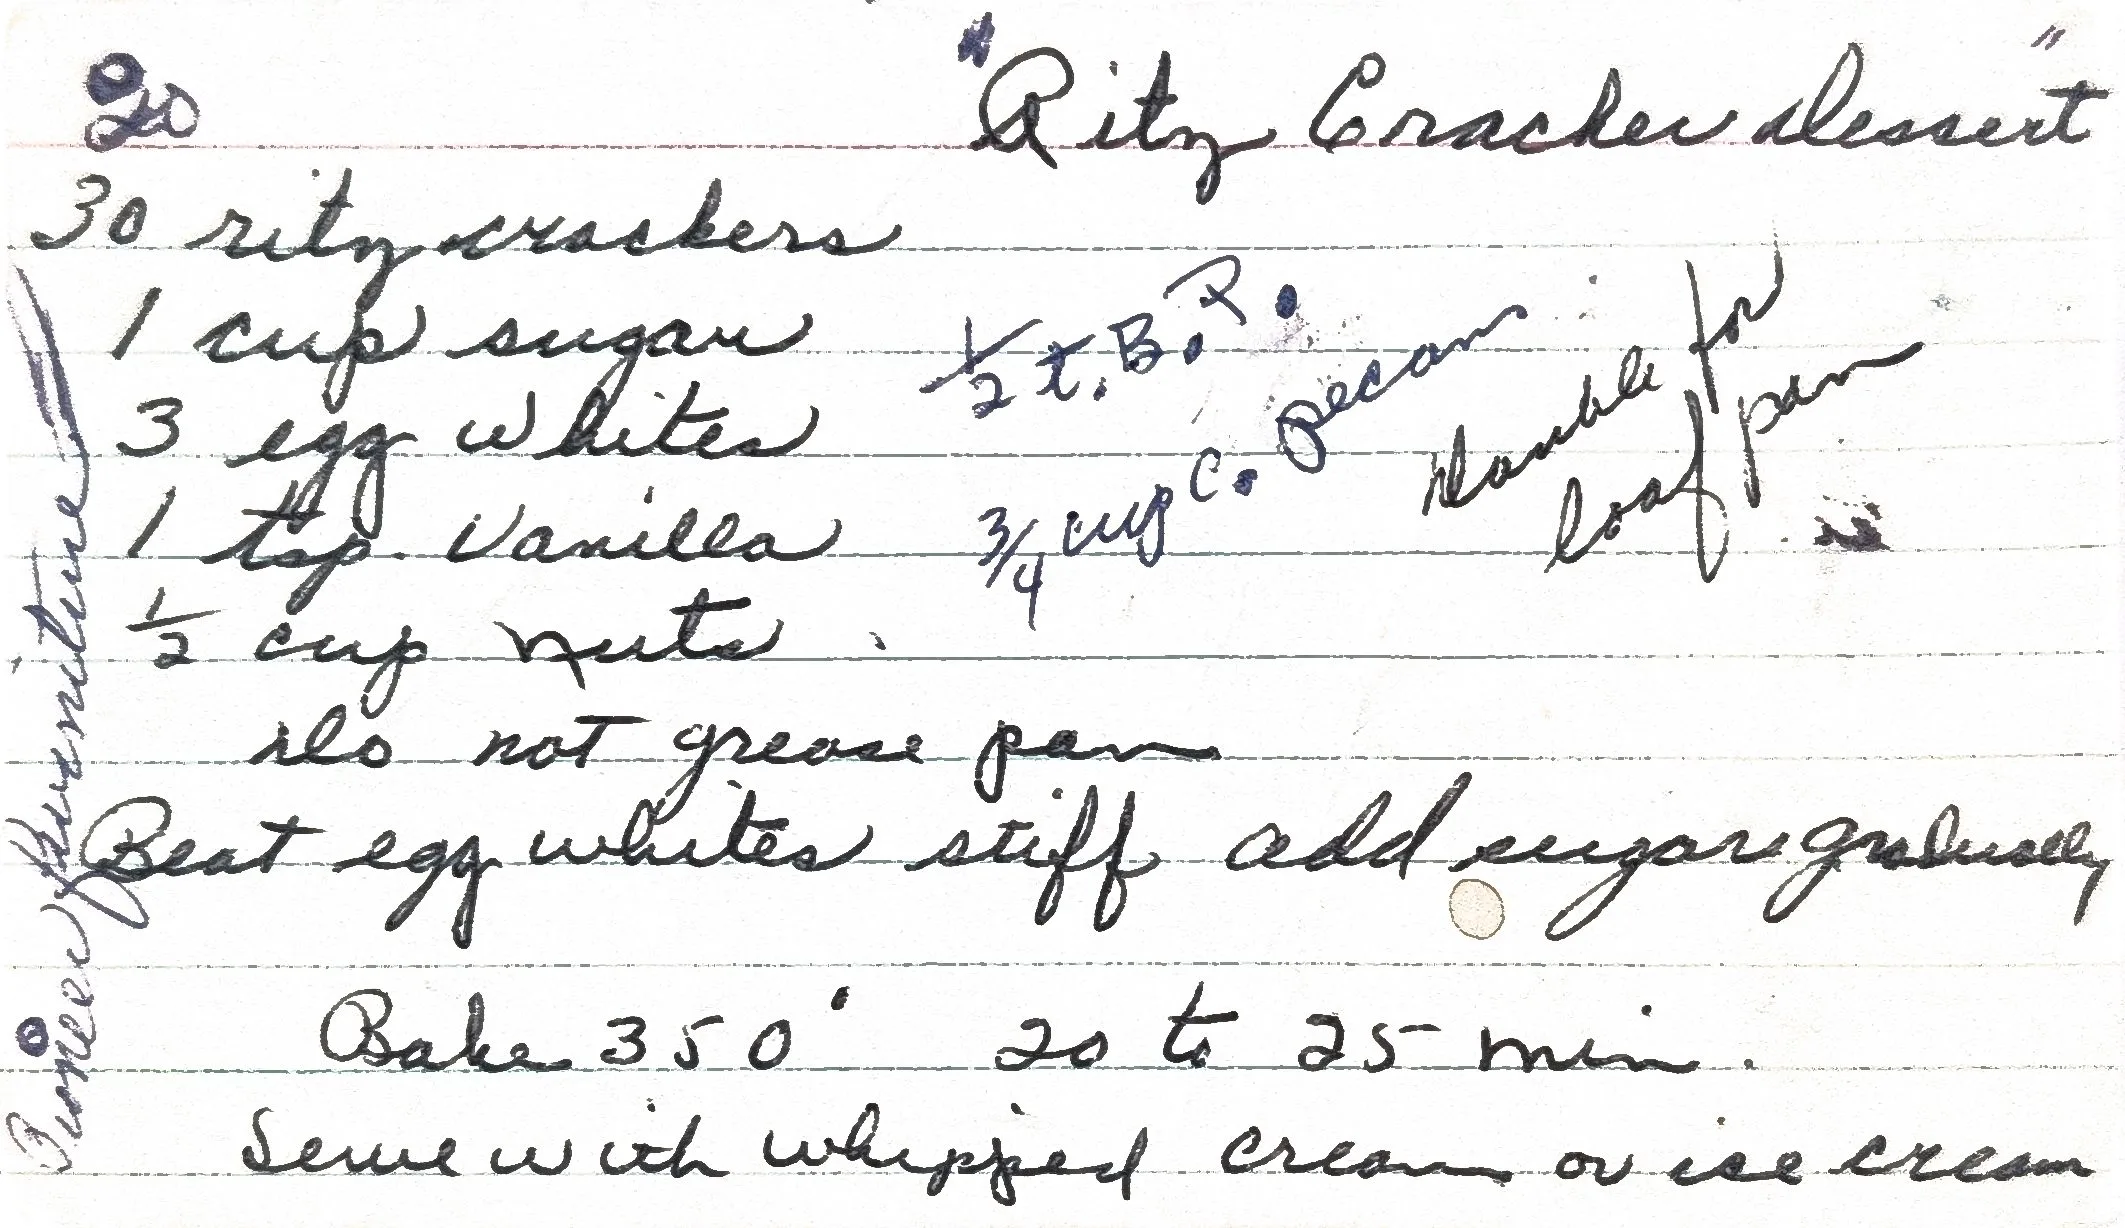 20
"Ritz Cracker Dessert"
30 ritz crackers
1 cup sugar
½ t. B.P.
3 egg whites
1 tsp. Vanilla
¾ cup c. pecans
Double for
loaf pan
½ cup nuts.
Do not grease pan
Beat egg whites stiff add sugar gradually
Bake 350° 20 to 25 min.
Serve with whipped cream or ice cream
Pioneer furniture